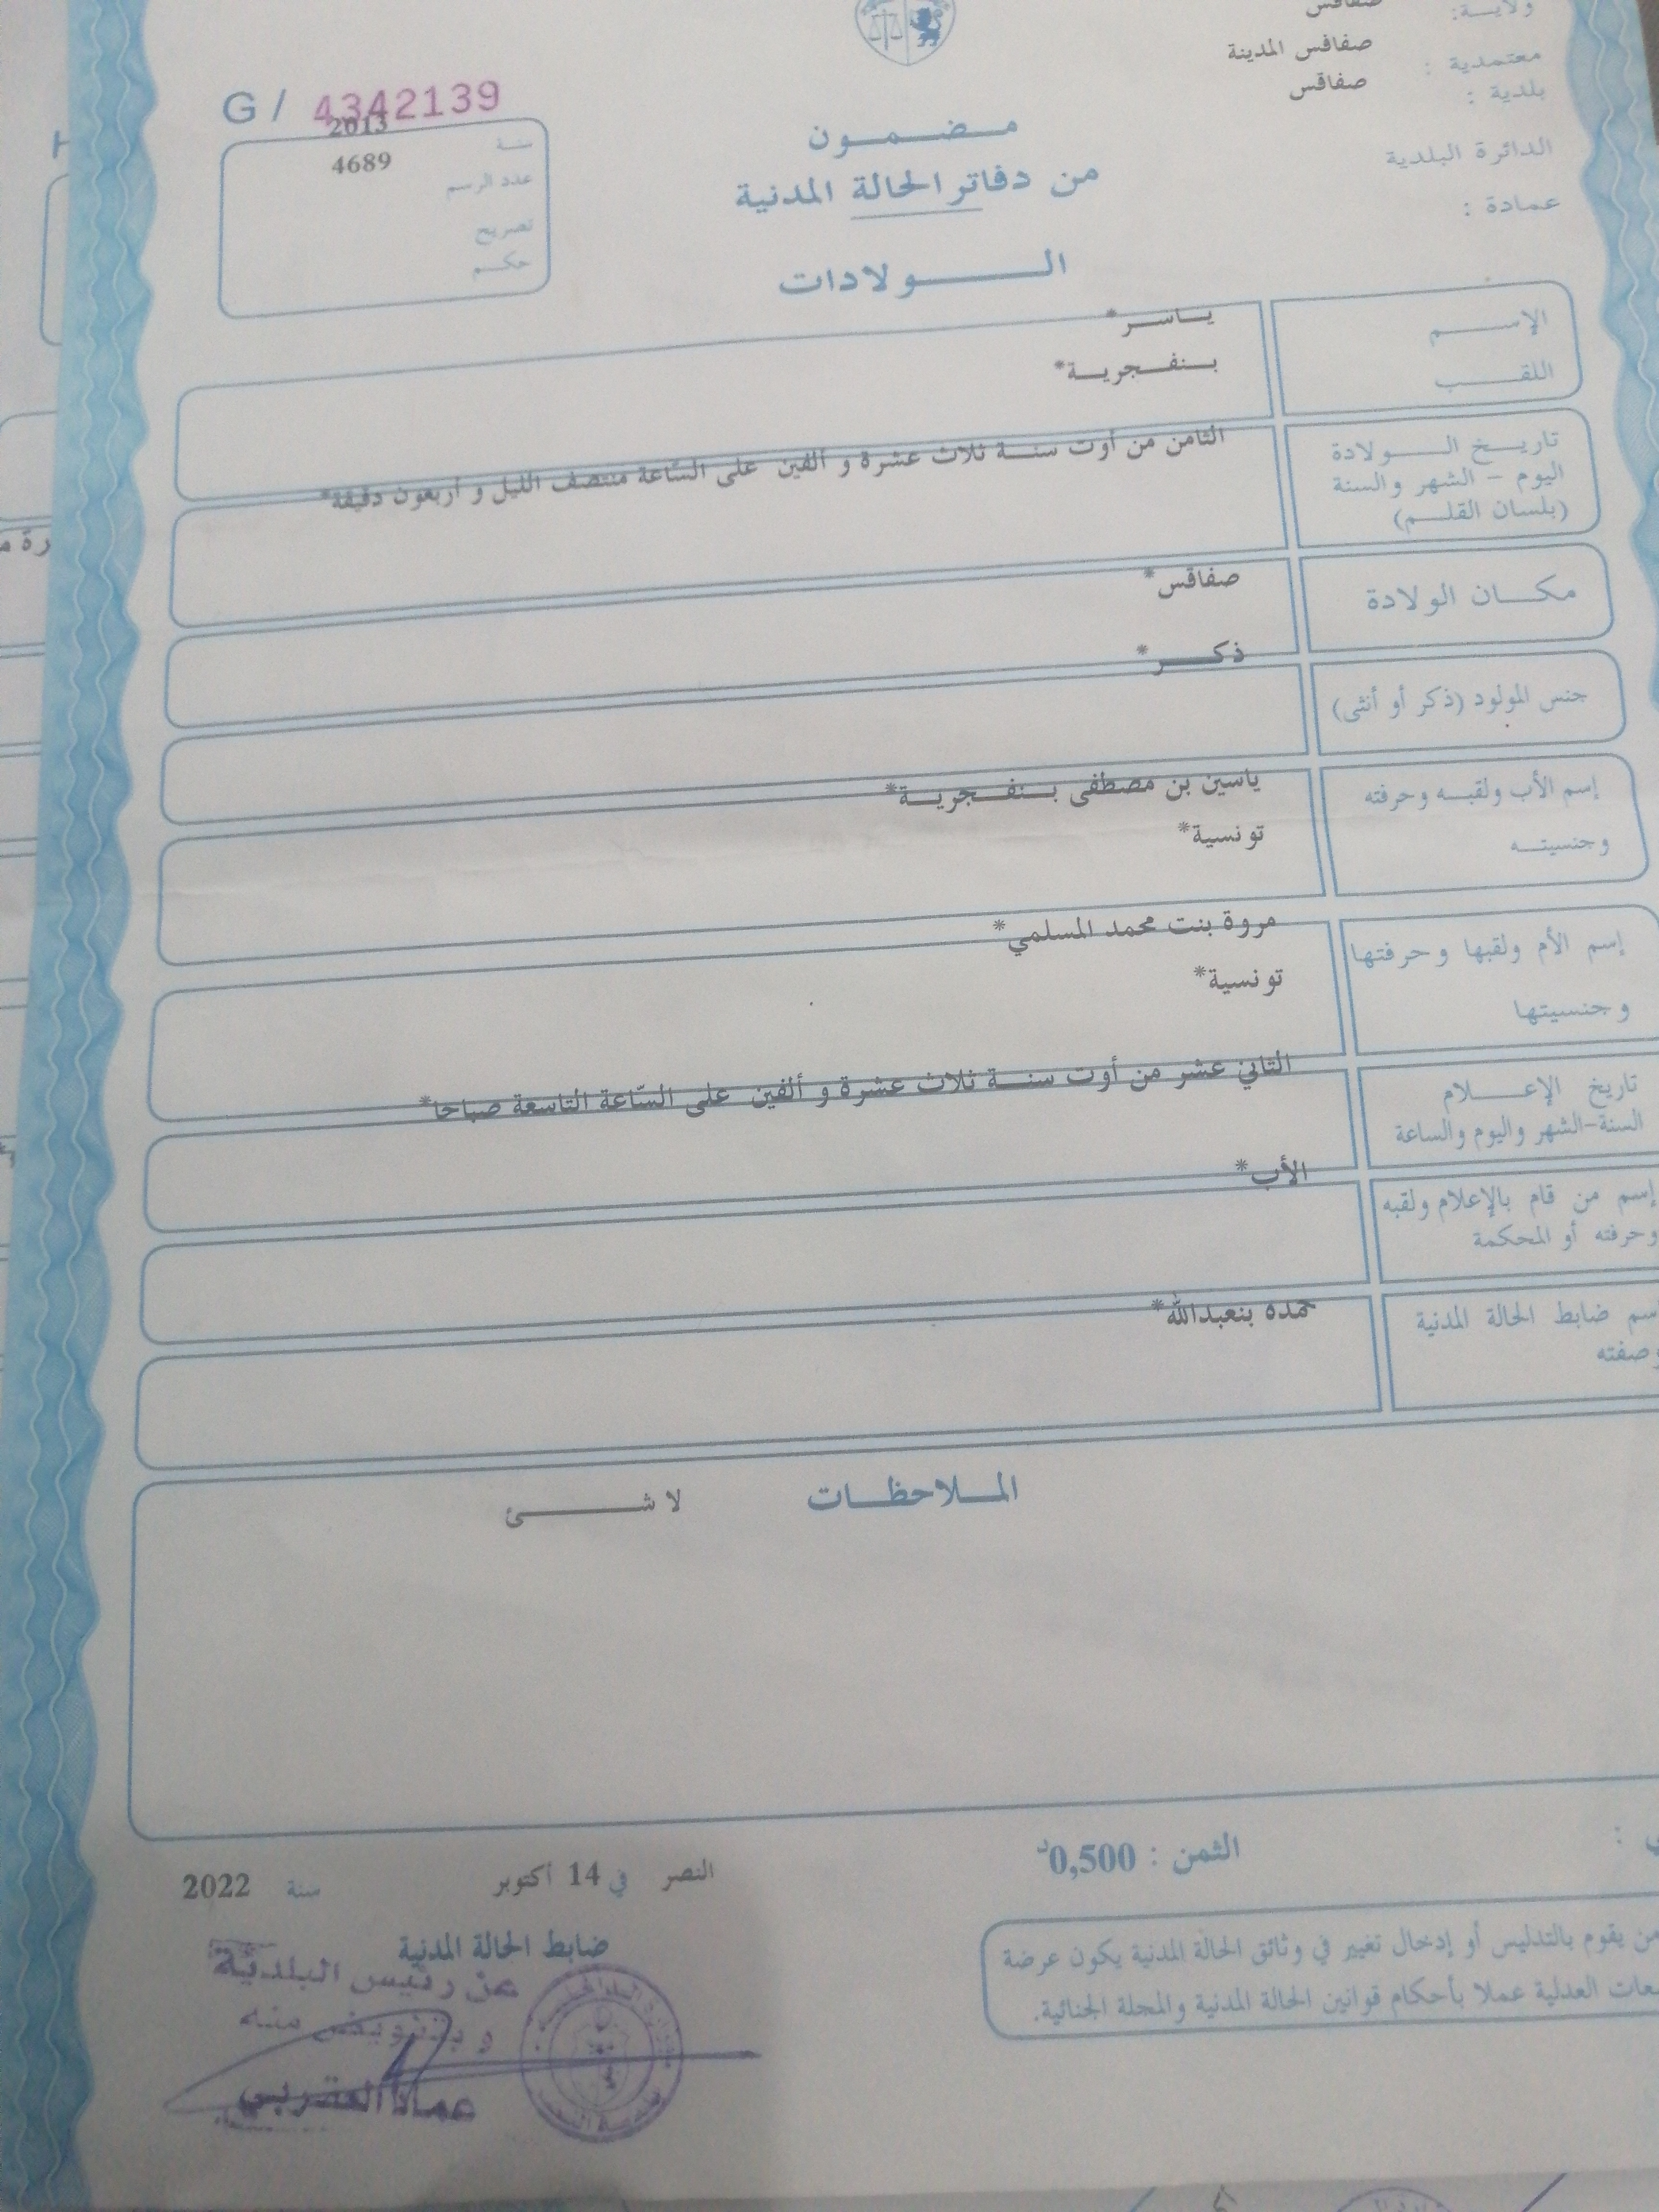 ولايــة: صفاقس
معتمدية : صفاقس المدينة
بلدية : صفاقس
الدائرة البلدية
عمادة :
G / 4342139
سنة 2013
عدد الرسم 4689
تصريح
حكم
مـضـمـون
من دفاتر الحالة المدنية
الـولادات
الإسم
ياسر*
اللقب
بنفجرية*
تاريخ الـولادة
اليوم - الشهر والسنة
(بلسان القلم)
الثامن من أوت سنة ثلاث عشرة و ألفين على السّاعة منتصف الليل و أربعون دقيقة*
مكـان الولادة
صفاقس*
جنس المولود (ذكر أو أنثى)
ذكر*
إسم الأب ولقبه وحرفته
وجنسيته
ياسين بن مصطفى بنفجرية*
تونسية*
إسم الأم ولقبها وحرفتها
وجنسيتها
مروة بنت محمد المسلمي*
تونسية*
تاريخ الإعلام
السنة-الشهر واليوم والساعة
الثاني عشر من أوت سنة ثلاث عشرة و ألفين على السّاعة التاسعة صباحا*
إسم من قام بالإعلام ولقبه
وحرفته أو المحكمة
الأب*
إسم ضابط الحالة المدنية
وصفته
حمده بنعبدالله*
المـلاحظـات
لا شئ
الثمن : 0,500د
النصر في 14 أكتوبر سنة 2022
ضابط الحالة المدنية
عن رئيس البلدية
و بتفويض منه
عماد العقربي
من يقوم بالتدليس أو إدخال تغيير في وثائق الحالة المدنية يكون عرضة
العدلية عملا بأحكام قوانين الحالة المدنية والمجلة الجنائية.